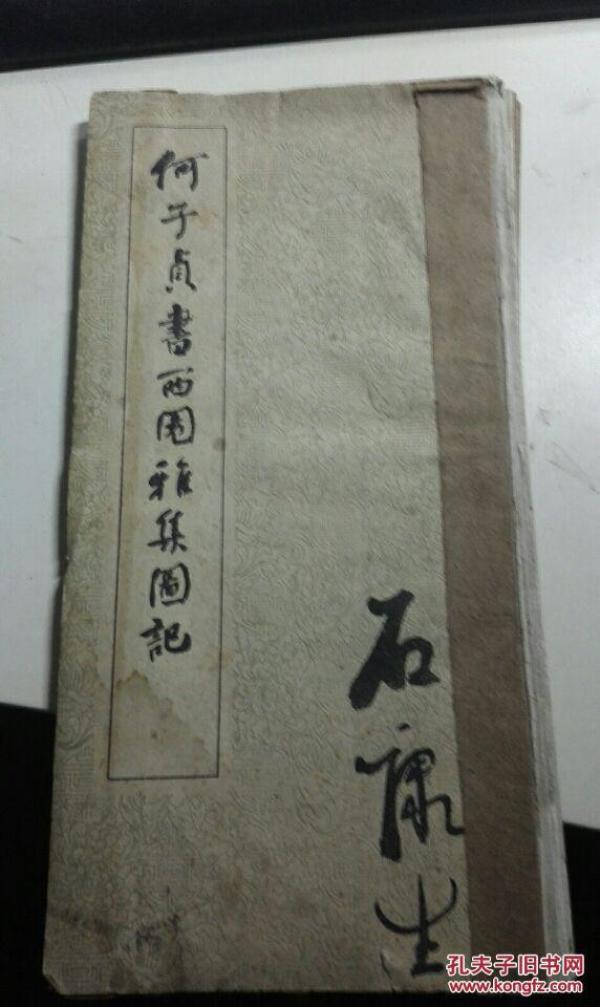 何子貞書西園雅集圖記
石康生
孔夫子旧书网
www.kongfz.com